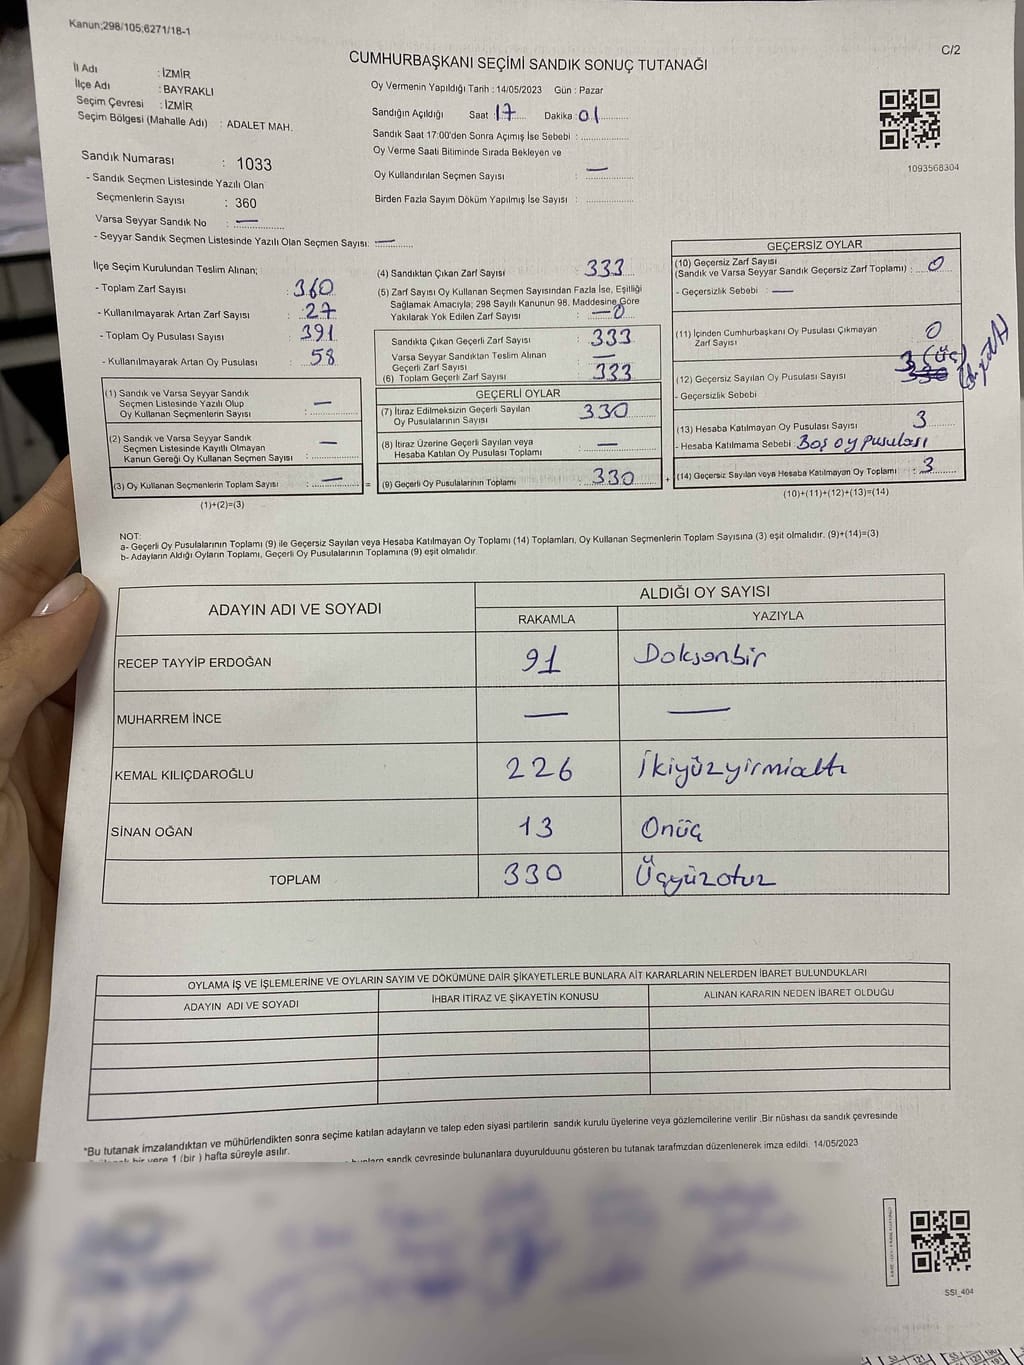 Kanun;298/105;6271/18-1
C/2
CUMHURBAŞKANI SEÇİMİ SANDIK SONUÇ TUTANAĞI
İl Adı : İZMİR
İlçe Adı : BAYRAKLI
Seçim Çevresi : İZMİR
Seçim Bölgesi (Mahalle Adı) : ADALET MAH.
Sandık Numarası : 1033
- Sandık Seçmen Listesinde Yazılı Olan
Seçmenlerin Sayısı : 360
Varsa Seyyar Sandık No : —
- Seyyar Sandık Seçmen Listesinde Yazılı Olan Seçmen Sayısı: —
Oy Vermenin Yapıldığı Tarih : 14/05/2023 Gün : Pazar
Sandığın Açıldığı Saat : 17 Dakika : 01
Sandık Saat 17:00'den Sonra Açımış İse Sebebi :
Oy Verme Saati Bitiminde Sırada Bekleyen ve
Oy Kullandırılan Seçmen Sayısı : —
Birden Fazla Sayım Döküm Yapılmış İse Sayısı :
1093568304
İlçe Seçim Kurulundan Teslim Alınan;
- Toplam Zarf Sayısı : 360
- Kullanılmayarak Artan Zarf Sayısı : 27
- Toplam Oy Pusulası Sayısı : 391
- Kullanılmayarak Artan Oy Pusulası : 58
(1) Sandık ve Varsa Seyyar Sandık
Seçmen Listesinde Yazılı Olup
Oy Kullanan Seçmenlerin Sayısı : —
(2) Sandık ve Varsa Seyyar Sandık
Seçmen Listesinde Kayıtlı Olmayan
Kanun Gereği Oy Kullanan Seçmen Sayısı : —
(3) Oy Kullanan Seçmenlerin Toplam Sayısı : —
(1)+(2)=(3)
=
(4) Sandıktan Çıkan Zarf Sayısı : 333
(5) Zarf Sayısı Oy Kullanan Seçmen Sayısından Fazla İse, Eşitliği
Sağlamak Amacıyla; 298 Sayılı Kanunun 98. Maddesine Göre
Yakılarak Yok Edilen Zarf Sayısı : —0
Sandıkta Çıkan Geçerli Zarf Sayısı : 333
Varsa Seyyar Sandıktan Teslim Alınan
Geçerli Zarf Sayısı : —
(6) Toplam Geçerli Zarf Sayısı : 333
GEÇERLİ OYLAR
(7) İtiraz Edilmeksizin Geçerli Sayılan
Oy Pusulalarının Sayısı : 330
(8) İtiraz Üzerine Geçerli Sayılan veya
Hesaba Katılan Oy Pusulası Toplamı : —
(9) Geçerli Oy Pusulalarının Toplamı : 330
+
GEÇERSİZ OYLAR
(10) Geçersiz Zarf Sayısı
(Sandık ve Varsa Seyyar Sandık Geçersiz Zarf Toplamı) : 0
- Geçersizlik Sebebi : —
(11) İçinden Cumhurbaşkanı Oy Pusulası Çıkmayan
Zarf Sayısı : 0
3 (üç)
(12) Geçersiz Sayılan Oy Pusulası Sayısı : 330
- Geçersizlik Sebebi
(13) Hesaba Katılmayan Oy Pusulası Sayısı : 3
- Hesaba Katılmama Sebebi : Boş oy pusulası
(14) Geçersiz Sayılan veya Hesaba Katılmayan Oy Toplamı : 3
(10)+(11)+(12)+(13)=(14)
NOT:
a- Geçerli Oy Pusulalarının Toplamı (9) ile Geçersiz Sayılan veya Hesaba Katılmayan Oy Toplamı (14) Toplamları, Oy Kullanan Seçmenlerin Toplam Sayısına (3) eşit olmalıdır. (9)+(14)=(3)
b- Adayların Aldığı Oyların Toplamı, Geçerli Oy Pusulalarının Toplamına (9) eşit olmalıdır.
ADAYIN ADI VE SOYADI
ALDIĞI OY SAYISI
RAKAMLA YAZIYLA
RECEP TAYYİP ERDOĞAN 91 Doksanbir
MUHARREM İNCE — —
KEMAL KILIÇDAROĞLU 226 İkiyüzyirmialtı
SİNAN OĞAN 13 Onüç
TOPLAM 330 Üçyüzotuz
OYLAMA İŞ VE İŞLEMLERİNE VE OYLARIN SAYIM VE DÖKÜMÜNE DAİR ŞİKAYETLERLE BUNLARA AİT KARARLARIN NELERDEN İBARET BULUNDUKLARI
ADAYIN ADI VE SOYADI İHBAR İTİRAZ VE ŞİKAYETİN KONUSU ALINAN KARARIN NEDEN İBARET OLDUĞU
*Bu tutanak imzalandıktan ve mühürlendikten sonra seçime katılan adayların ve talep eden siyasi partilerin sandık kurulu üyelerine veya gözlemcilerine verilir .Bir nüshası da sandık çevresinde
bir yere 1 (bir ) hafta süreyle asılır.
sandk çevresinde bulunanlara duyurulduunu gösteren bu tutanak tarafmzdan düzenlenerek imza edildi. 14/05/2023
SSI_404